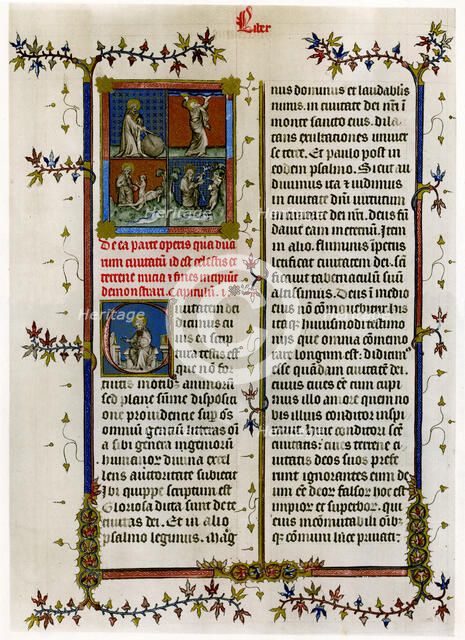 Liber
De ea parte operis qua dua
rum ciuitatum id est celestis et
terrene inicia & fines incipiūt
demonstrari. Capitulū. i.
Ciuitatem dei
dicimus cu
ius ea scrip
tura testis est
que non for
tuitis motibꝫ animorū
sed plane sūme dispositi
one prouidencie sup oīs
omniū genciū litteras oīa
sibi genera ingeniorū
humanorū diuina excel
lens auctoritate subiecit
Ibi quippe scriptum est
Gloriosa dicta sunt de te
ciuitas dei. Et in alio
psalmo legimus. Mag
nus dominus et laudabilis
nimis. in ciuitate dei nr̄i ī
monte sancto eius. dila
tans exultationes uniuer
se terre. Et paulo post in
eodem psalmo. Sicut au
diuimus ita & uidimus
in ciuitate dn̄i uirtutum
in ciuitate dei nr̄i. deus fū
dauit eam in eternū. Item
in alio. fluminis īpetus
letificat ciuitatem dei. sc̄i
ficauit tabernaculū suū
altissimus. Deus ī medio
eius non cōmouebitur. Hijs
atqꝫ huiusmodi testimo
nijs que omnia cōmemo
rare longum est. didicimꝰ
esse quādam ciuitatē dei.
cuius ciues esse cum cupi
mus illo amore quem no
bis illius conditor inspi
rauit. Huic conditori sc̄e
ciuitatis. ciues terrene ci
uitatis deos suos prefe
runt ignorantes eum de
um eē deor̄ falsor̄ hoc est
impior̄ et superbor̄. qui
eius incōmutabili oībꝫ
qꝫ cōmuni luce priuati.
Heritage
Heritage
Heritage
Heritage
Heritage